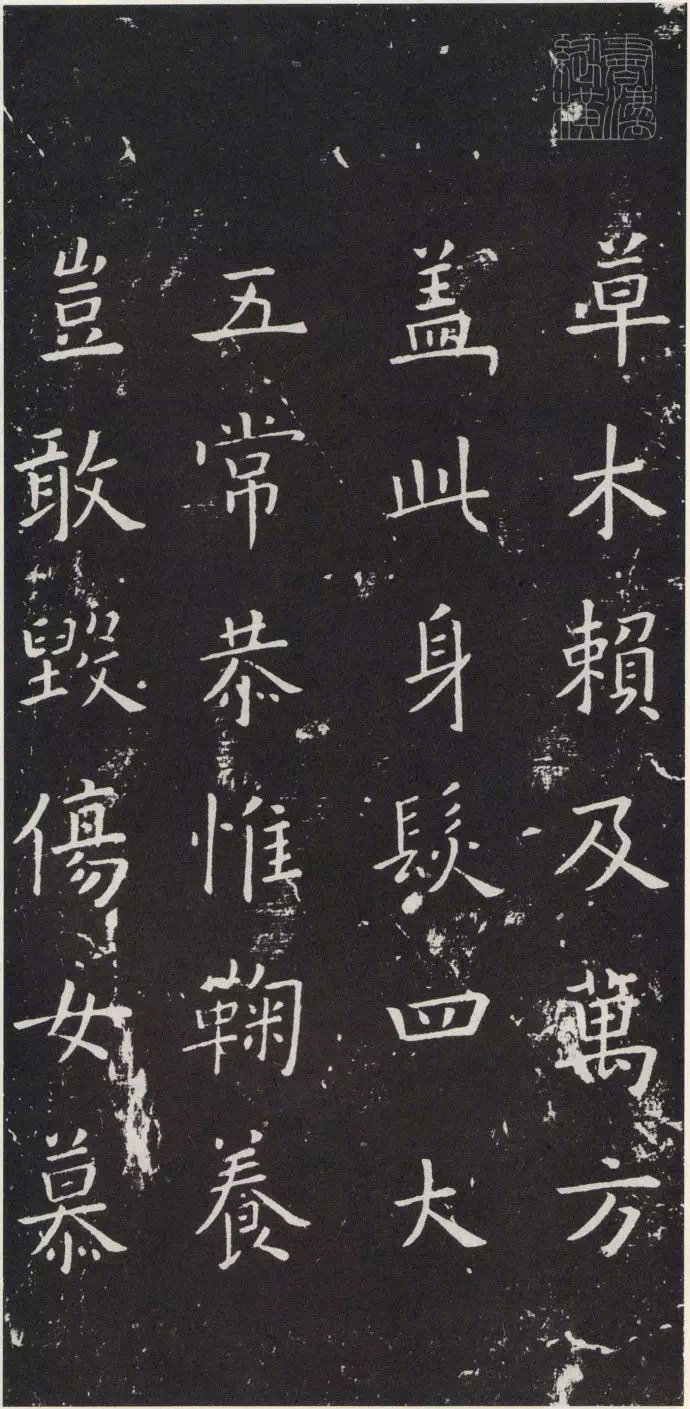 草木賴及萬方
盖此身髮四大
五常恭惟鞠養
豈敢毀傷女慕